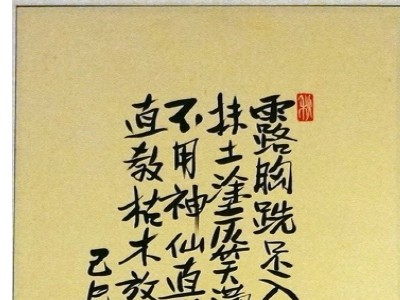 露胸跣足入
抹土塗灰笑滿
不用神仙真
直教枯木放
己